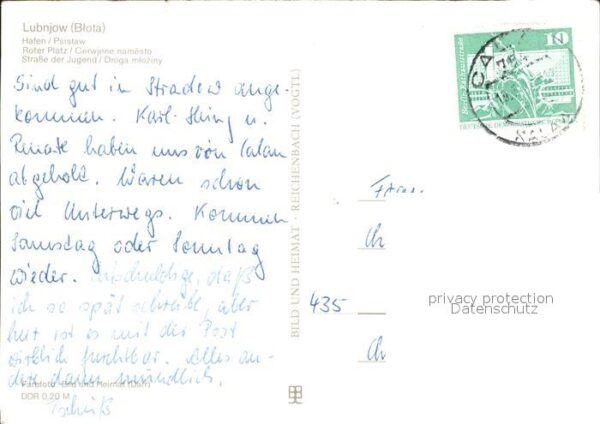 Lubnjow (Błota)
Hafen / Pśistaw
Roter Platz / Cerwjene naměsto
Straße der Jugend / Droga młoźiny
Sind gut in Stradow ange-
kommen. Karl-Heinz u.
Renate haben uns von Calau
abgeholt. Waren schon
viel Unterwegs. Kommen
Samstag oder Sonntag
wieder. Entschuldige, daß
ich so spät schreibe, aber
hier ist es mit der Post
wirklich furchtbar. Alles an-
dere dann mündlich.
Tschüß
Farbfoto: Bild und Heimat
DDR 0,20 M
BILD UND HEIMAT · REICHENBACH (VOGTL)
10
CALAU
KALAWA
Fam.
435
privacy protection
Datenschutz